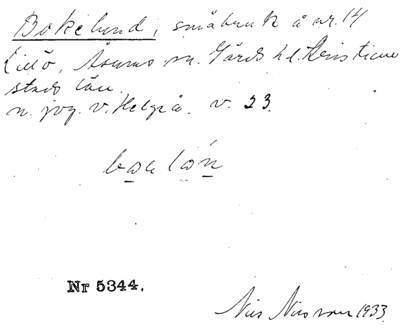 Bokelund, småbruk å nr. 14
Lillö, Åsums sn. Gärds hd. Kristian
stads län.
n. jvg. v. Helgeå. v. 23.
Nr 5344.
Nils Nilsson 1933.